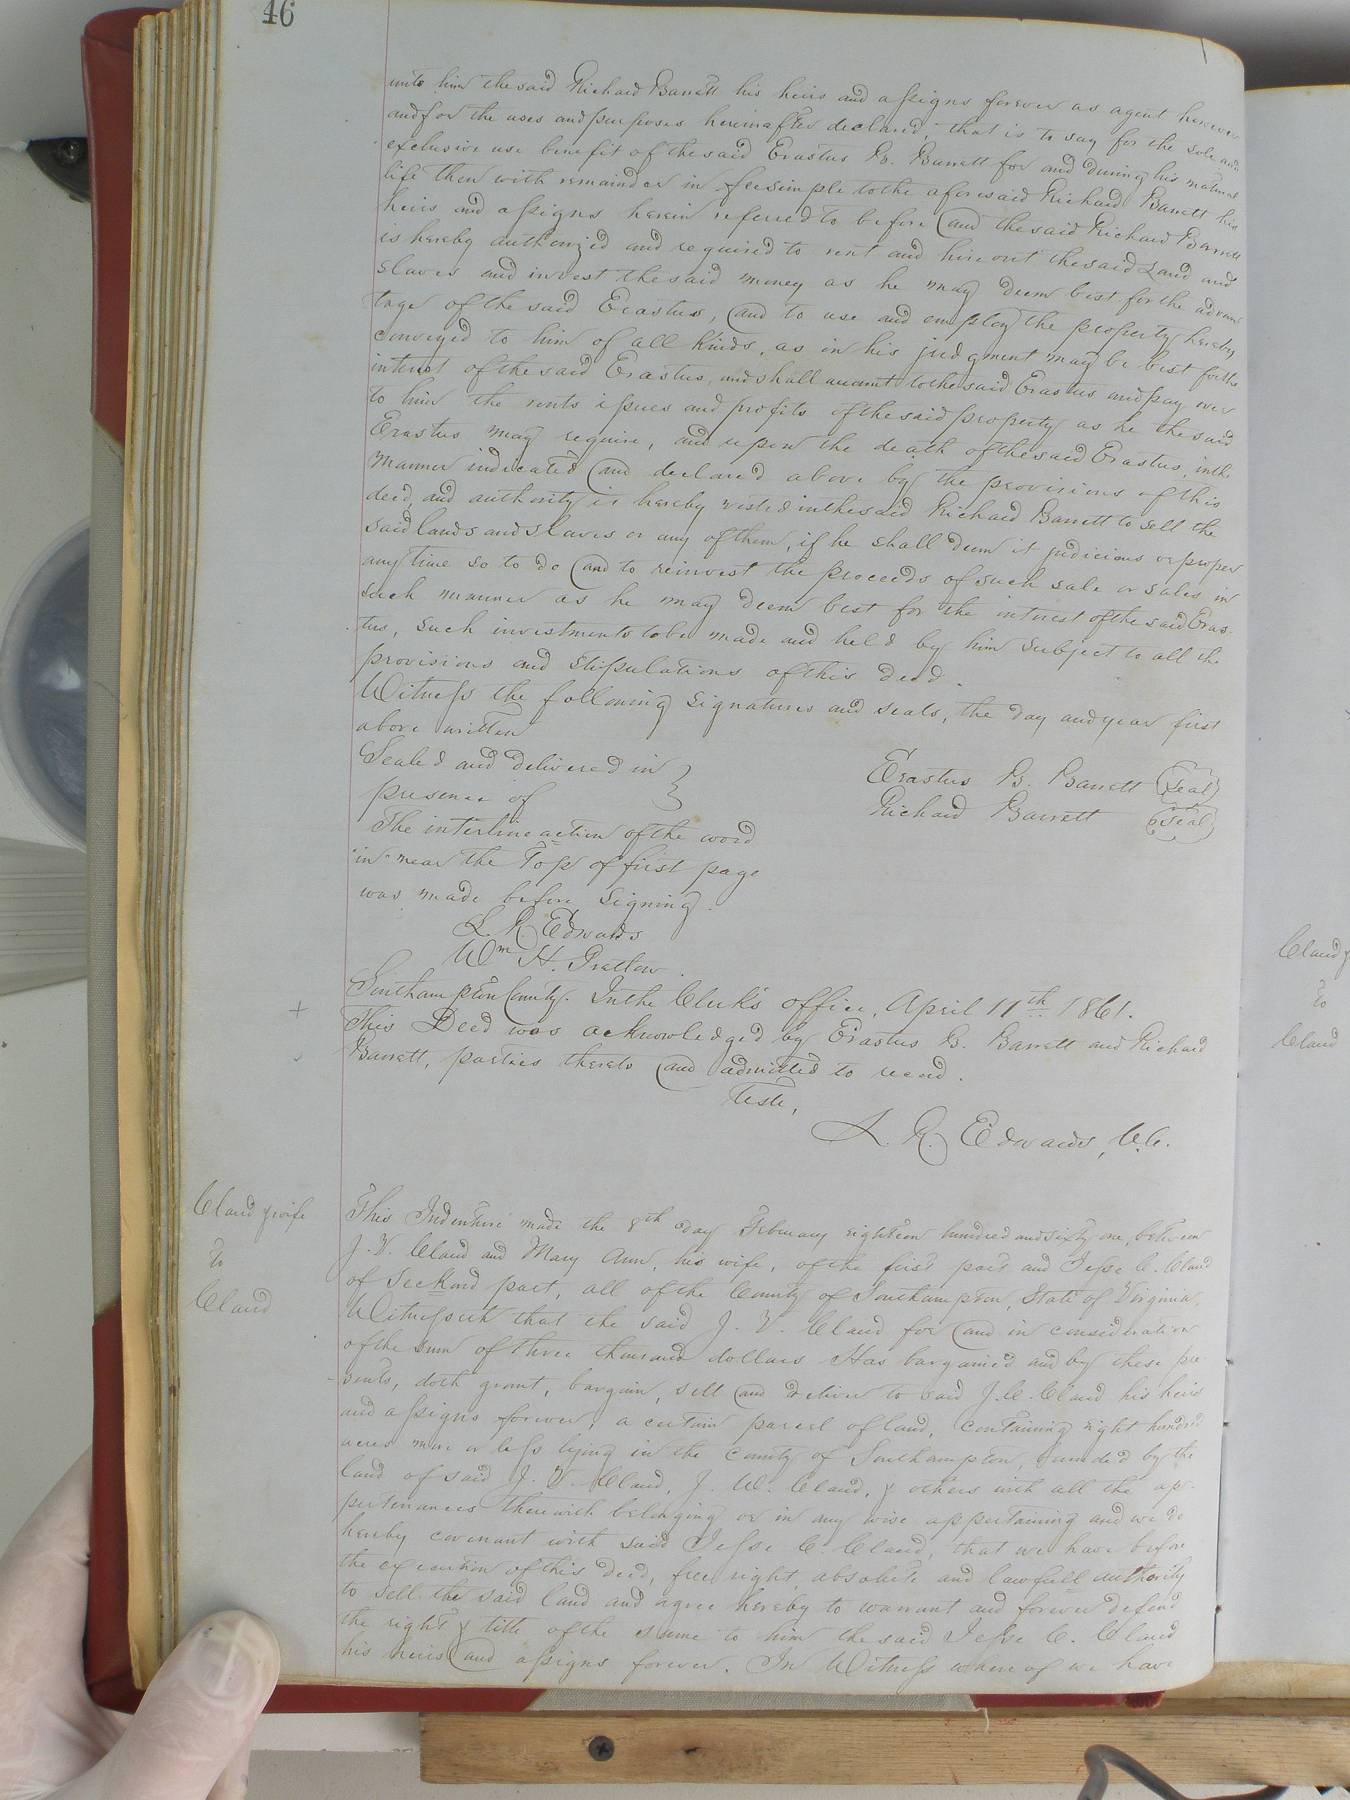 46
unto him the said Richard Barrett his heirs and assigns forever as agent however
and for the uses and purposes hereinafter declared, that is to say for the sole and
exclusive use benefit of the said Erastus B. Barrett for and during his natural
life then with remainder in fee simple to the aforesaid Richard Barrett his
heirs and assigns herein referred to before and the said Richard Barrett
is hereby authorized and required to rent and hire out the said Land and
slaves and invest the said money as he may deem best for the advan
tage of the said Erastus, and to use and employ the property hereby
conveyed to him of all kinds, as in his judgment may be best for the
interest of the said Erastus, and shall account to the said Erastus and pay over
to him the rents issues and profits of the said property as he the said
Erastus may require, and upon the death of the said Erastus, in the
manner indicated and declared above by the provisions of this
deed, and authority is hereby vested in the said Richard Barrett to sell the
said lands and slaves or any of them, if he shall deem it judicious or proper
any time so to do and to reinvest the proceeds of such sale or sales in
such manner as he may deem best for the interest of the said Eras-
tus, such investments to be made and held by him subject to all the
provisions and stipulations of this deed.
Witness the following signatures and seals, the day and year first
above written
Sealed and delivered in
presence of
Erastus B. Barrett (seal)
Richard Barrett (seal)
The interlineaction of the word
"in" near the Top of first page
was made before signing.
L. R. Edwards
Wm H. Pretlow.
Southampton County. In the Clerk's office, April 11th 1861.
This Deed was acknowledged by Erastus B. Barrett and Richard
Barrett, parties thereto and admitted to record.
Teste,
L. R. Edwards, C.C.
Cland & wife
to
Cland
This Indenture made the 8th day February eighteen hundred and sixty one, between
J. V. Cland and Mary Ann, his wife, of the first part and Jesse C. Cland
of Seckond part, all of the County of Southampton, State of Virginia,
Witnesseth that the said J. V. Cland for and in consideration
of the sum of three thousand dollars Has bargained and by these pre-
sents, doth grant, bargain, sell and deliver to said J. C. Cland his heirs
and assigns forever, a certain parcel of land, containing eight hundred
acres more or less lying in the County of Southampton, bounded by the
land of said J. V. Cland, J. W. Cland, & others with all the ap-
pertenances therewith belonging or in any wise appertaining and we do
hereby covenant with said Jesse C Cland, that we have before
the execution of this deed, free right, absolute and lawfull authority
to sell the said land and agree hereby to warrant and forever defend
the right & title of the same to him the said Jesse C. Cland
his heirs and assigns forever. In Witness whereof we have
Cland &
to
Cland